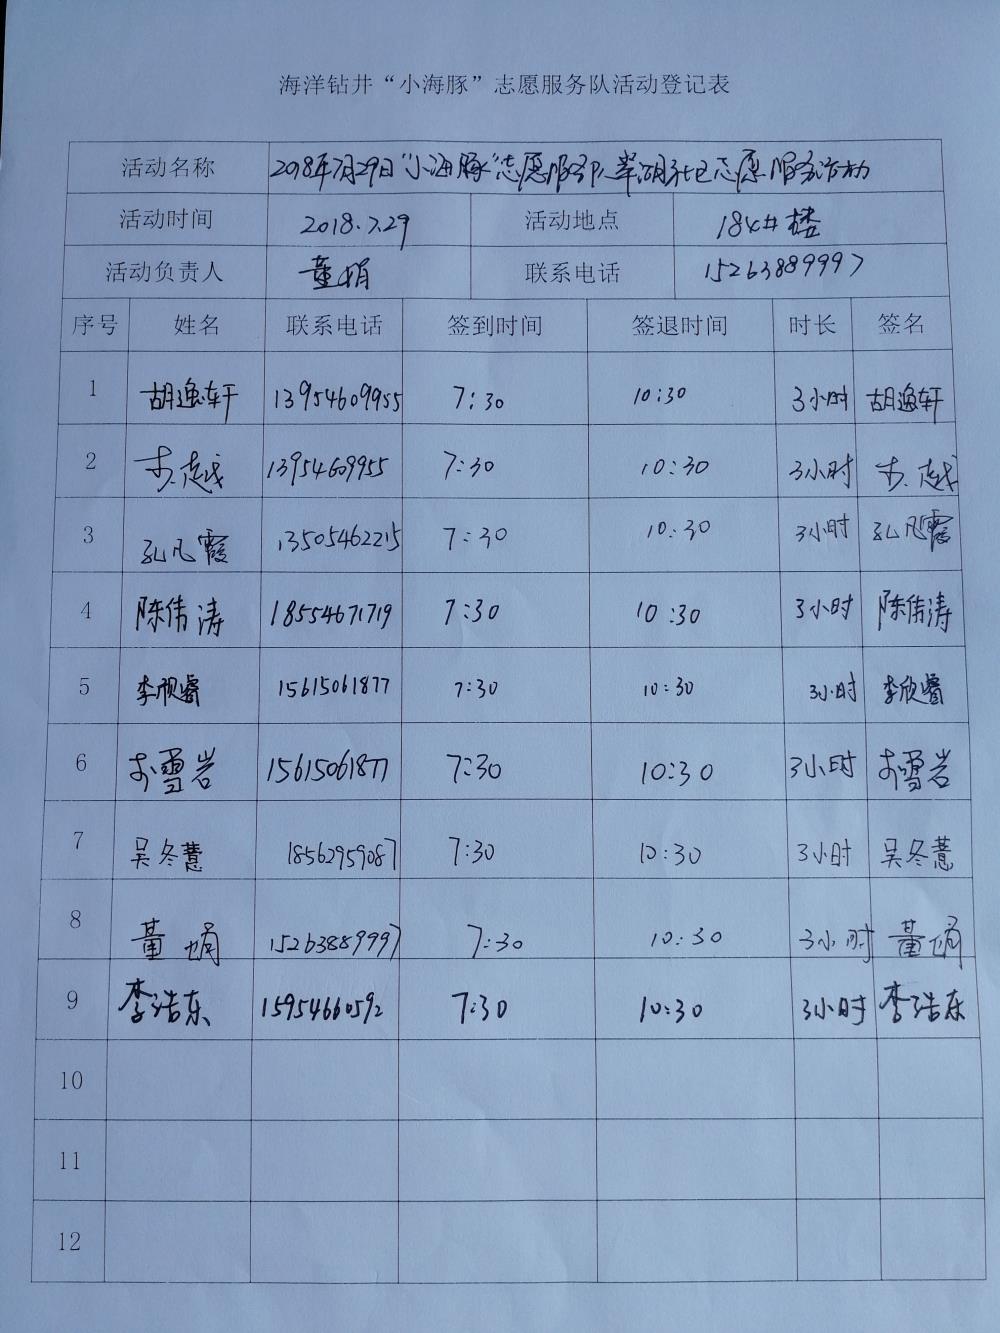 海洋钻井“小海豚”志愿服务队活动登记表
活动名称 2018年7月29日“小海豚”志愿服务队翠湖社区志愿服务活动
活动时间 2018.7.29 活动地点 184#楼
活动负责人 董娟 联系电话 15263889997
序号 姓名 联系电话 签到时间 签退时间 时长 签名
1 胡逸轩 13954609955 7:30 10:30 3小时 胡逸轩
2 越 13954609955 7:30 10:30 3小时 越
3 孔凡霞 13505462215 7:30 10:30 3小时 孔凡霞
4 陈伟涛 18554671719 7:30 10:30 3小时 陈伟涛
5 李欣睿 15615061877 7:30 10:30 3小时 李欣睿
6 雪岩 15615061877 7:30 10:30 3小时 雪岩
7 吴冬慧 18562959087 7:30 10:30 3小时 吴冬慧
8 董娟 15263889997 7:30 10:30 3小时 董娟
9 李浩东 15954660592 7:30 10:30 3小时 李浩东
10
11
12